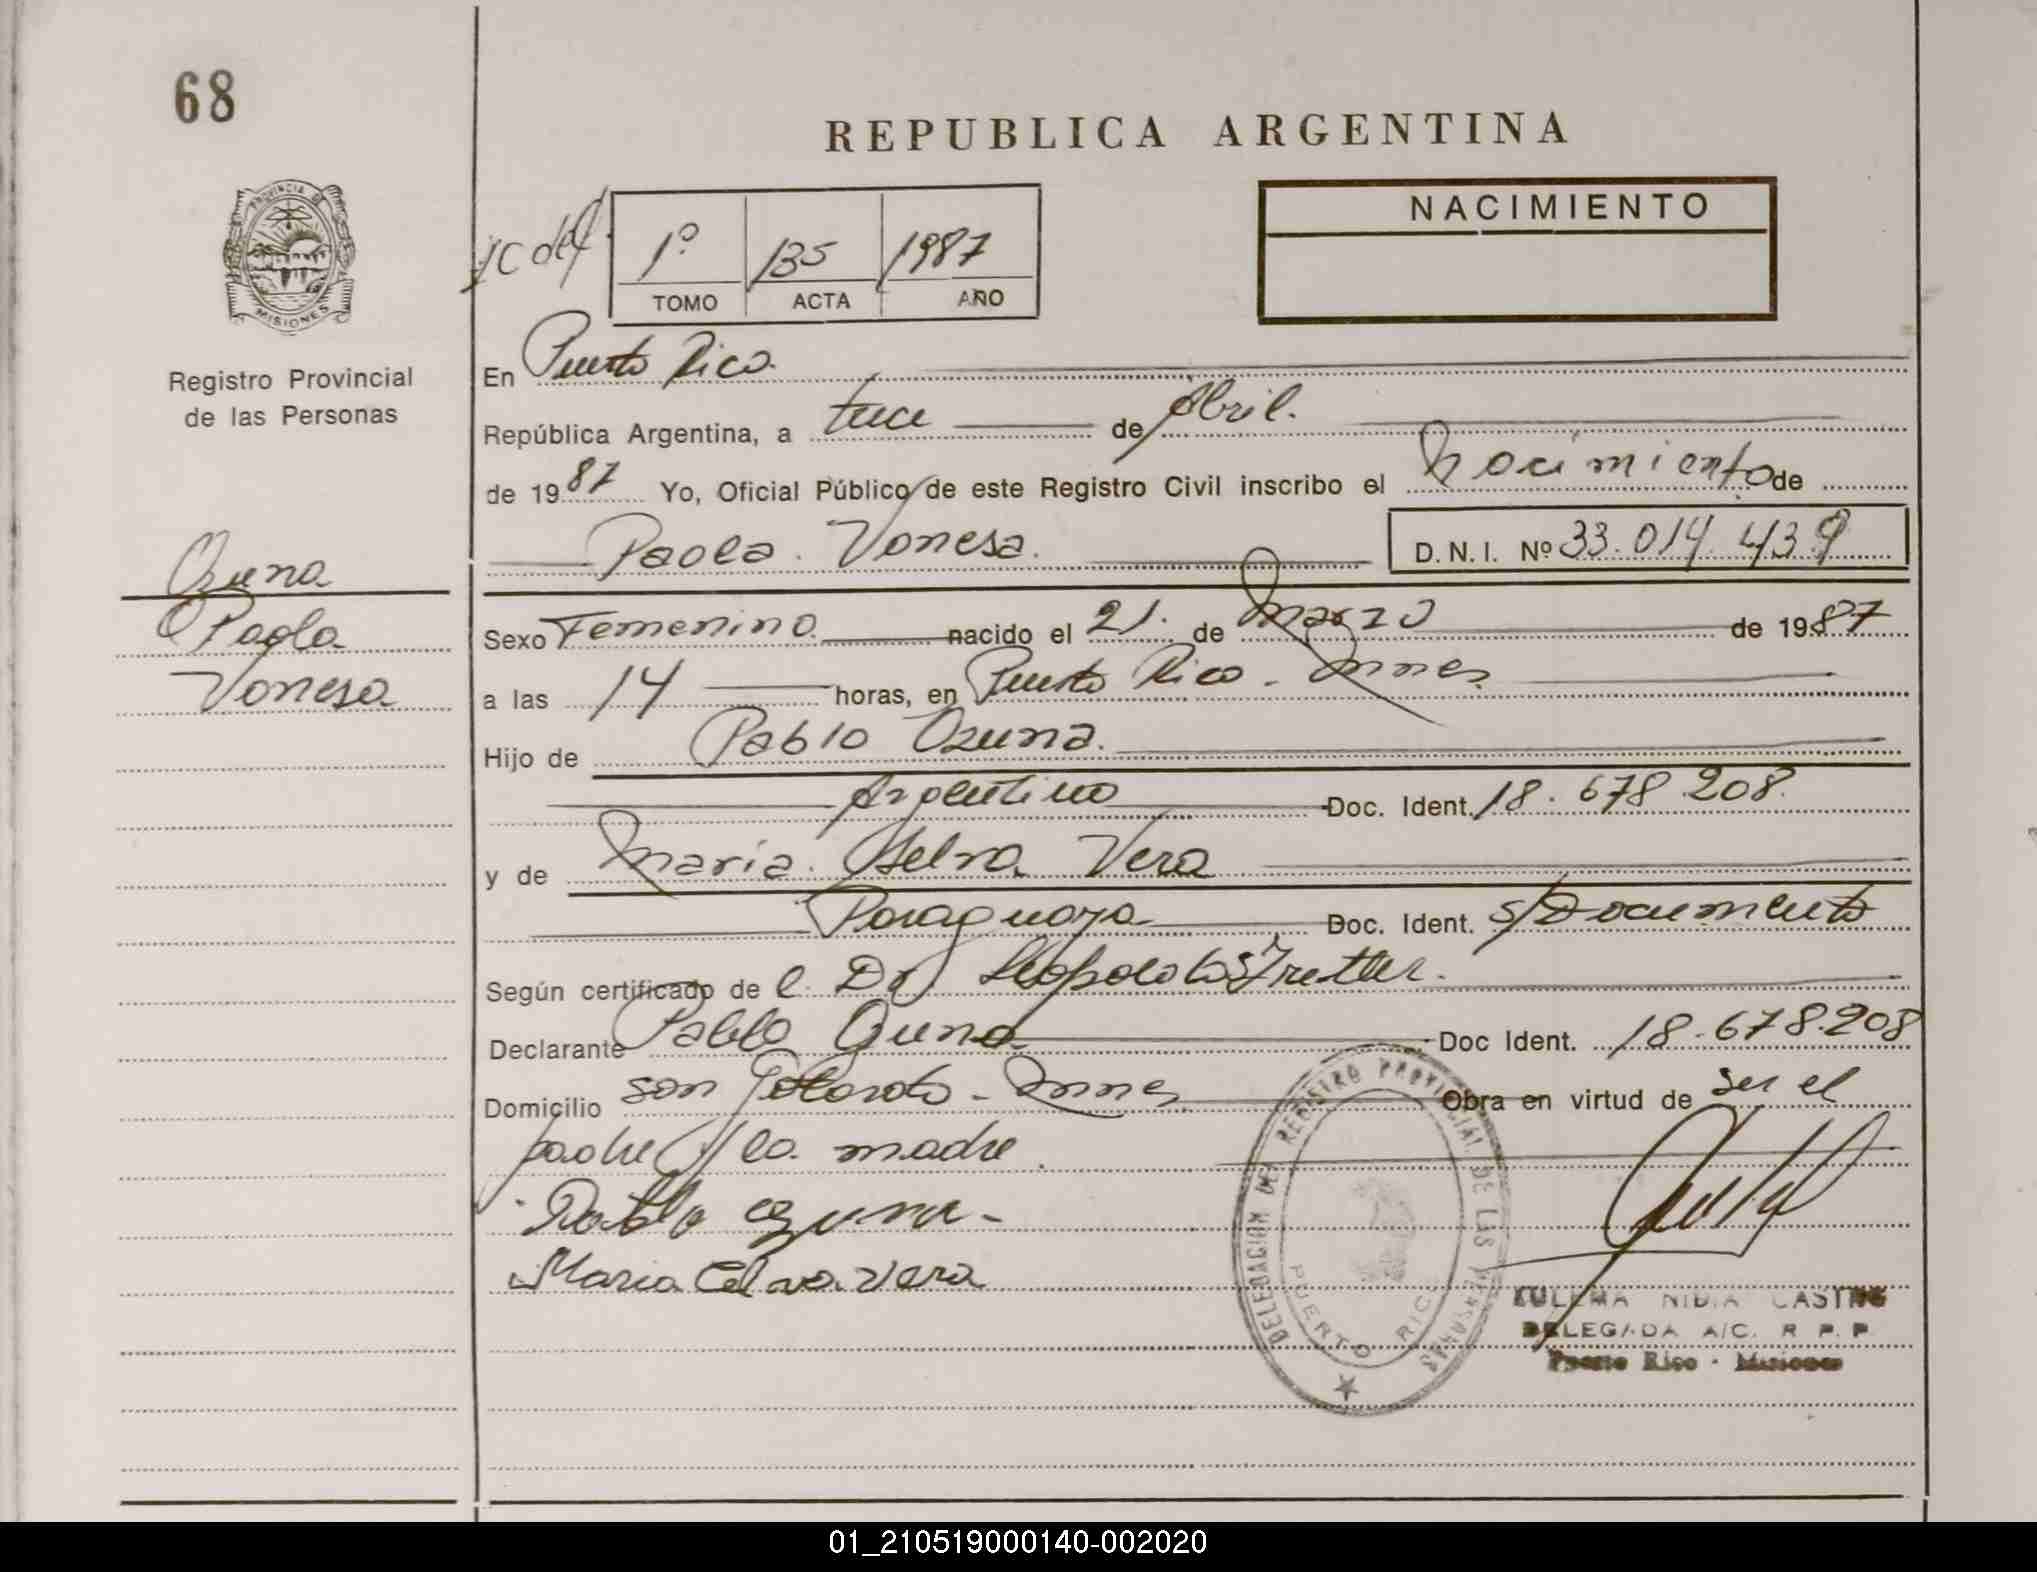 68
REPUBLICA ARGENTINA
NACIMIENTO
1º 135 1987
TOMO ACTA AÑO
PROVINCIA DE
MISIONES
Registro Provincial
de las Personas
En Puerto Rico.
República Argentina, a trece de Abril.
de 1987 Yo, Oficial Público de este Registro Civil inscribo el Nacimiento de
Paola Vanesa. D.N.I. Nº 33.014.439
Ozuna
Paola
Vanesa
Sexo Femenino nacido el 21. de Marzo de 1987
a las 14 horas, en Puerto Rico - Mnes.
Hijo de Pablo Ozuna.
Argentino Doc. Ident. 18.678.208.
y de Maria Selva Vera
Paraguaya Doc. Ident. s/Documento
Según certificado de el Dr Leopoldo
Declarante Pablo Ozuna Doc Ident. 18.678.208
Domicilio San Gotardo - Mnes Obra en virtud de ser el
padre y la madre.
Pablo ozuna -
Maria Celva Vera
DELEGACION DEL REGISTRO PROVINCIAL DE LAS PERSONAS
PUERTO RICO
ZULEMA NIDIA CASTRO
DELEGADA A/C. R. P. P.
Puerto Rico - Misiones
01_210519000140-002020